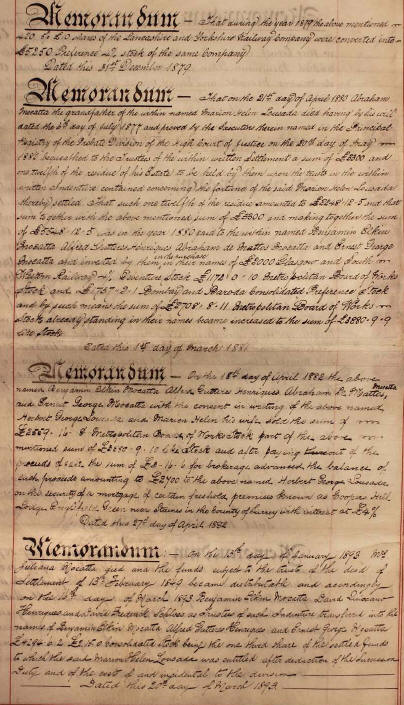 Memorandum — That during the year 1879 the above mentioned
£10 shares of the Lancashire and Yorkshire Railway Company were converted into
£5250 Preference 4% stock of the same Company
Dated this 31st December 1879
Memorandum — That on the 21st day of April 1880 Abraham
Mocatta the grandfather of the within named Marion Helen Lousada died having by his will
dated the day of July 1877 and proved by the Executors therein named in the Principal
Registry of the Probate Division of the High Court of Justice on the day of May
1880 bequeathed to the Trustees of the within written settlement a sum of £3300 and
one twelfth of the residue of his Estate to be held by them upon the trusts in the within
written Indenture contained concerning the fortune of the said Marion Helen Lousada
thereby settled That such one twelfth of the residue amounted to 12.5 and that
sum together with the above mentioned sum of £3300 and making together the sum
of 12.5 was in the year 1880 paid to the within named Benjamin Elkin
Mocatta Alfred Gutteres Henriques Abraham de Mattos Mocatta and Ernest George
Mocatta and invested by them in the purchase in their names of £3000 Glasgow and South
Western Railway 4% Debenture Stock £1721.0.10 Metropolitan Board of Works
Stock and £757.2.1 Bombay and Baroda Consolidated Preference Stock
and by such means the sum of £2708.8.11 Metropolitan Board of Works
Stock already standing in their names became increased to the sum of 9.9
like Stock
Dated this 1st day of March 1881
Memorandum — On the 18th day of April 1882 the above
named Benjamin Elkin Mocatta Alfred Gutteres Henriques Abraham de Mattos Mocatta
and Ernest George Mocatta with the consent in writing of the above named
Herbert George Lousada and Marion Helen his wife sold the sum of
£2559.16. Metropolitan Board of Works Stock part of the above
mentioned sum of 9.10 like Stock and after paying thereout of the
proceeds of sale the sum of 16.6 for brokerage advanced the balance of
such proceeds amounting to £2700 to the above named Herbert George Lousada
on the security of a mortgage of certain freehold premises known as Coopers Hill
Lodge Englefield Green near Staines in the County of Surrey with interest at £4%
Dated this 27th day of April 1882
Memorandum — On the 13th day of January 1893 Mrs
Juliana Mocatta died and the funds subject to the trusts of the deed of
Settlement of 13th February 1849 became distributable and accordingly
on the day of March 1893 Benjamin Elkin Mocatta David Lindo
Henriques and David Frederick Schloss as Trustees of such Indenture transferred into the
names of Benjamin Elkin Mocatta Alfred Gutteres Henriques and Ernest George Mocatta
6.2 Consolidated Stock being the one third share of the settled funds
to which the said Marion Helen Lousada was entitled after deduction of the Succession
Duty and of the cost of and incidental to the division
Dated this 20th day of March 1893